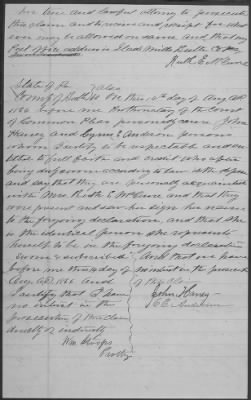 true and lawful attorney to prosecute
this claim and to receive and receipt for what
ever may be allowed on same and that my
Post office address is
Ruth E. McClure
State of Pa
County of Butler SS On this 10th day of Aug AD
1866 before me Prothonotary of the Court
of Common Pleas personally came John
Haney and
whom I certify to be respectable and en
titled to full faith and credit who after
being duly sworn according to law doth depose
and say that they are personally acquainted
with Mrs Ruth E McClure and that they
were present and saw her sign her name
to the foregoing declaration, and that she
is the identical person she represents
herself to be in the foregoing declaration
Sworn & subscribed And that we have
before me this 10 day of no interest in the
Aug AD 1866 and
I certify that I have John Haney
no interest in the
prosecution of this claim
directly or indirectly
Wm Stoops
Prothy